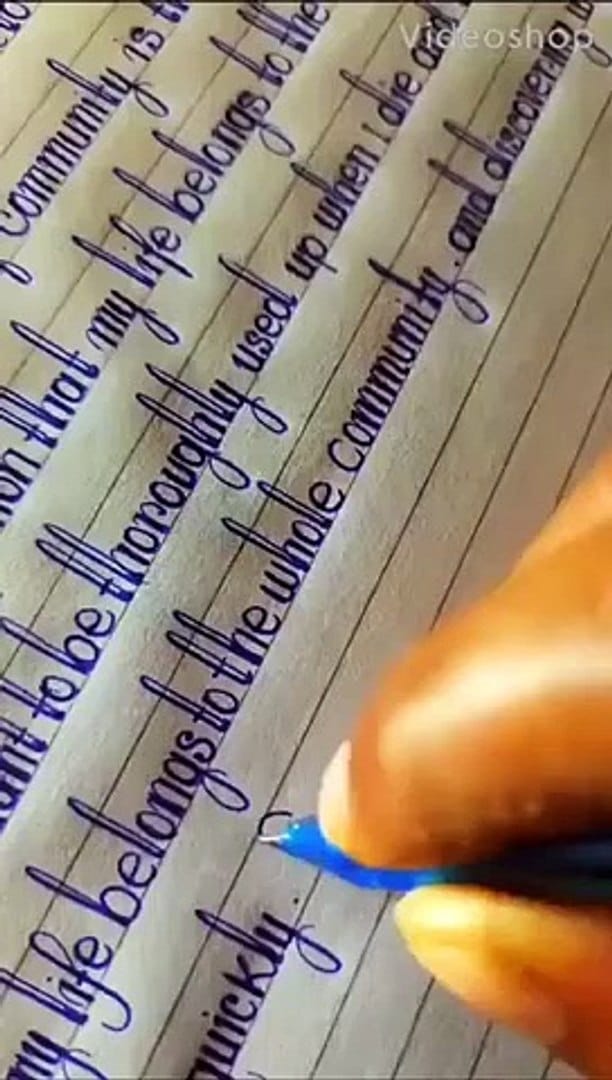 Videoshop
community is
on that my life belongs to the
to be thoroughly used up when i die
my life belongs to the whole community. and discovering
quickly.